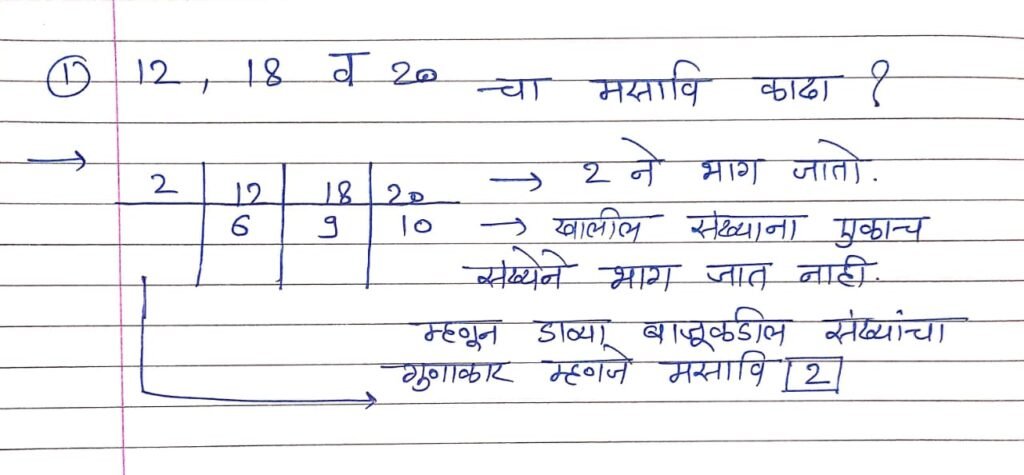 ① 12, 18 व 20 चा मसावि काढा ?
→ 2 | 12 | 18 | 20 → 2 ने भाग जातो.
6 | 9 | 10 → खालील संख्याना एकाच
संख्येने भाग जात नाही.
म्हणून डाव्या बाजूकडील संख्यांचा
गुणाकार म्हणजे मसावि 2